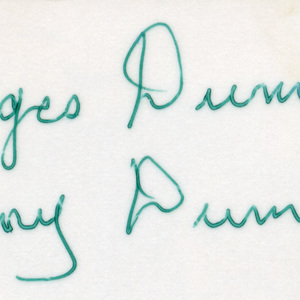 ges Dum
ny Dum